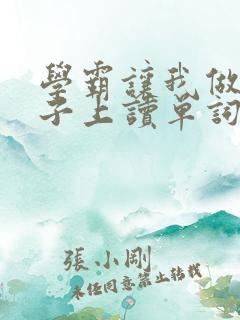 學霸讓我做
子上讀單詞
張小剛
未任同意禁止轉載